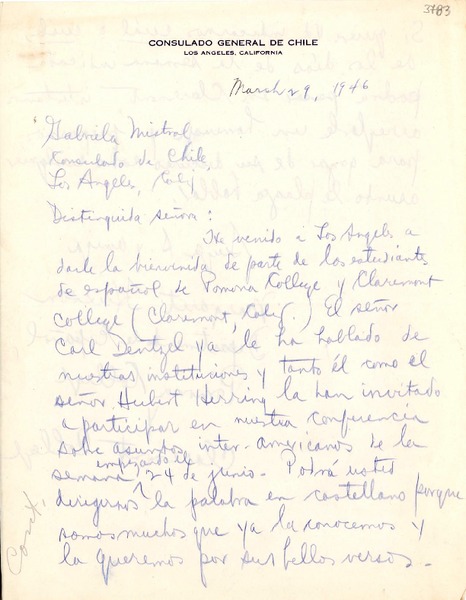 3783
CONSULADO GENERAL DE CHILE
LOS ANGELES, CALIFORNIA
March 29, 1946
Gabriela Mistral
Consulado de Chile,
Los Angeles, Calif.
Distinguida señora:
He venido á Los Angeles a
darle la bienvenida de parte de los estudiantes
de español de Pomona College y Claremont
College (Claremont, Calif.) El señor
Carl Dentzel ya le ha hablado de
nuestras instituciones y tanto él como el
señor Hubert Herring la han invitado
a participar en nuestra conferencia
sobre asuntos inter-americanos de la
semana empezando el 24 de junio. Podrá usted
dirigirnos la palabra en castellano porque
somos muchos que ya la conocemos y
la queremos por sus bellos versos.